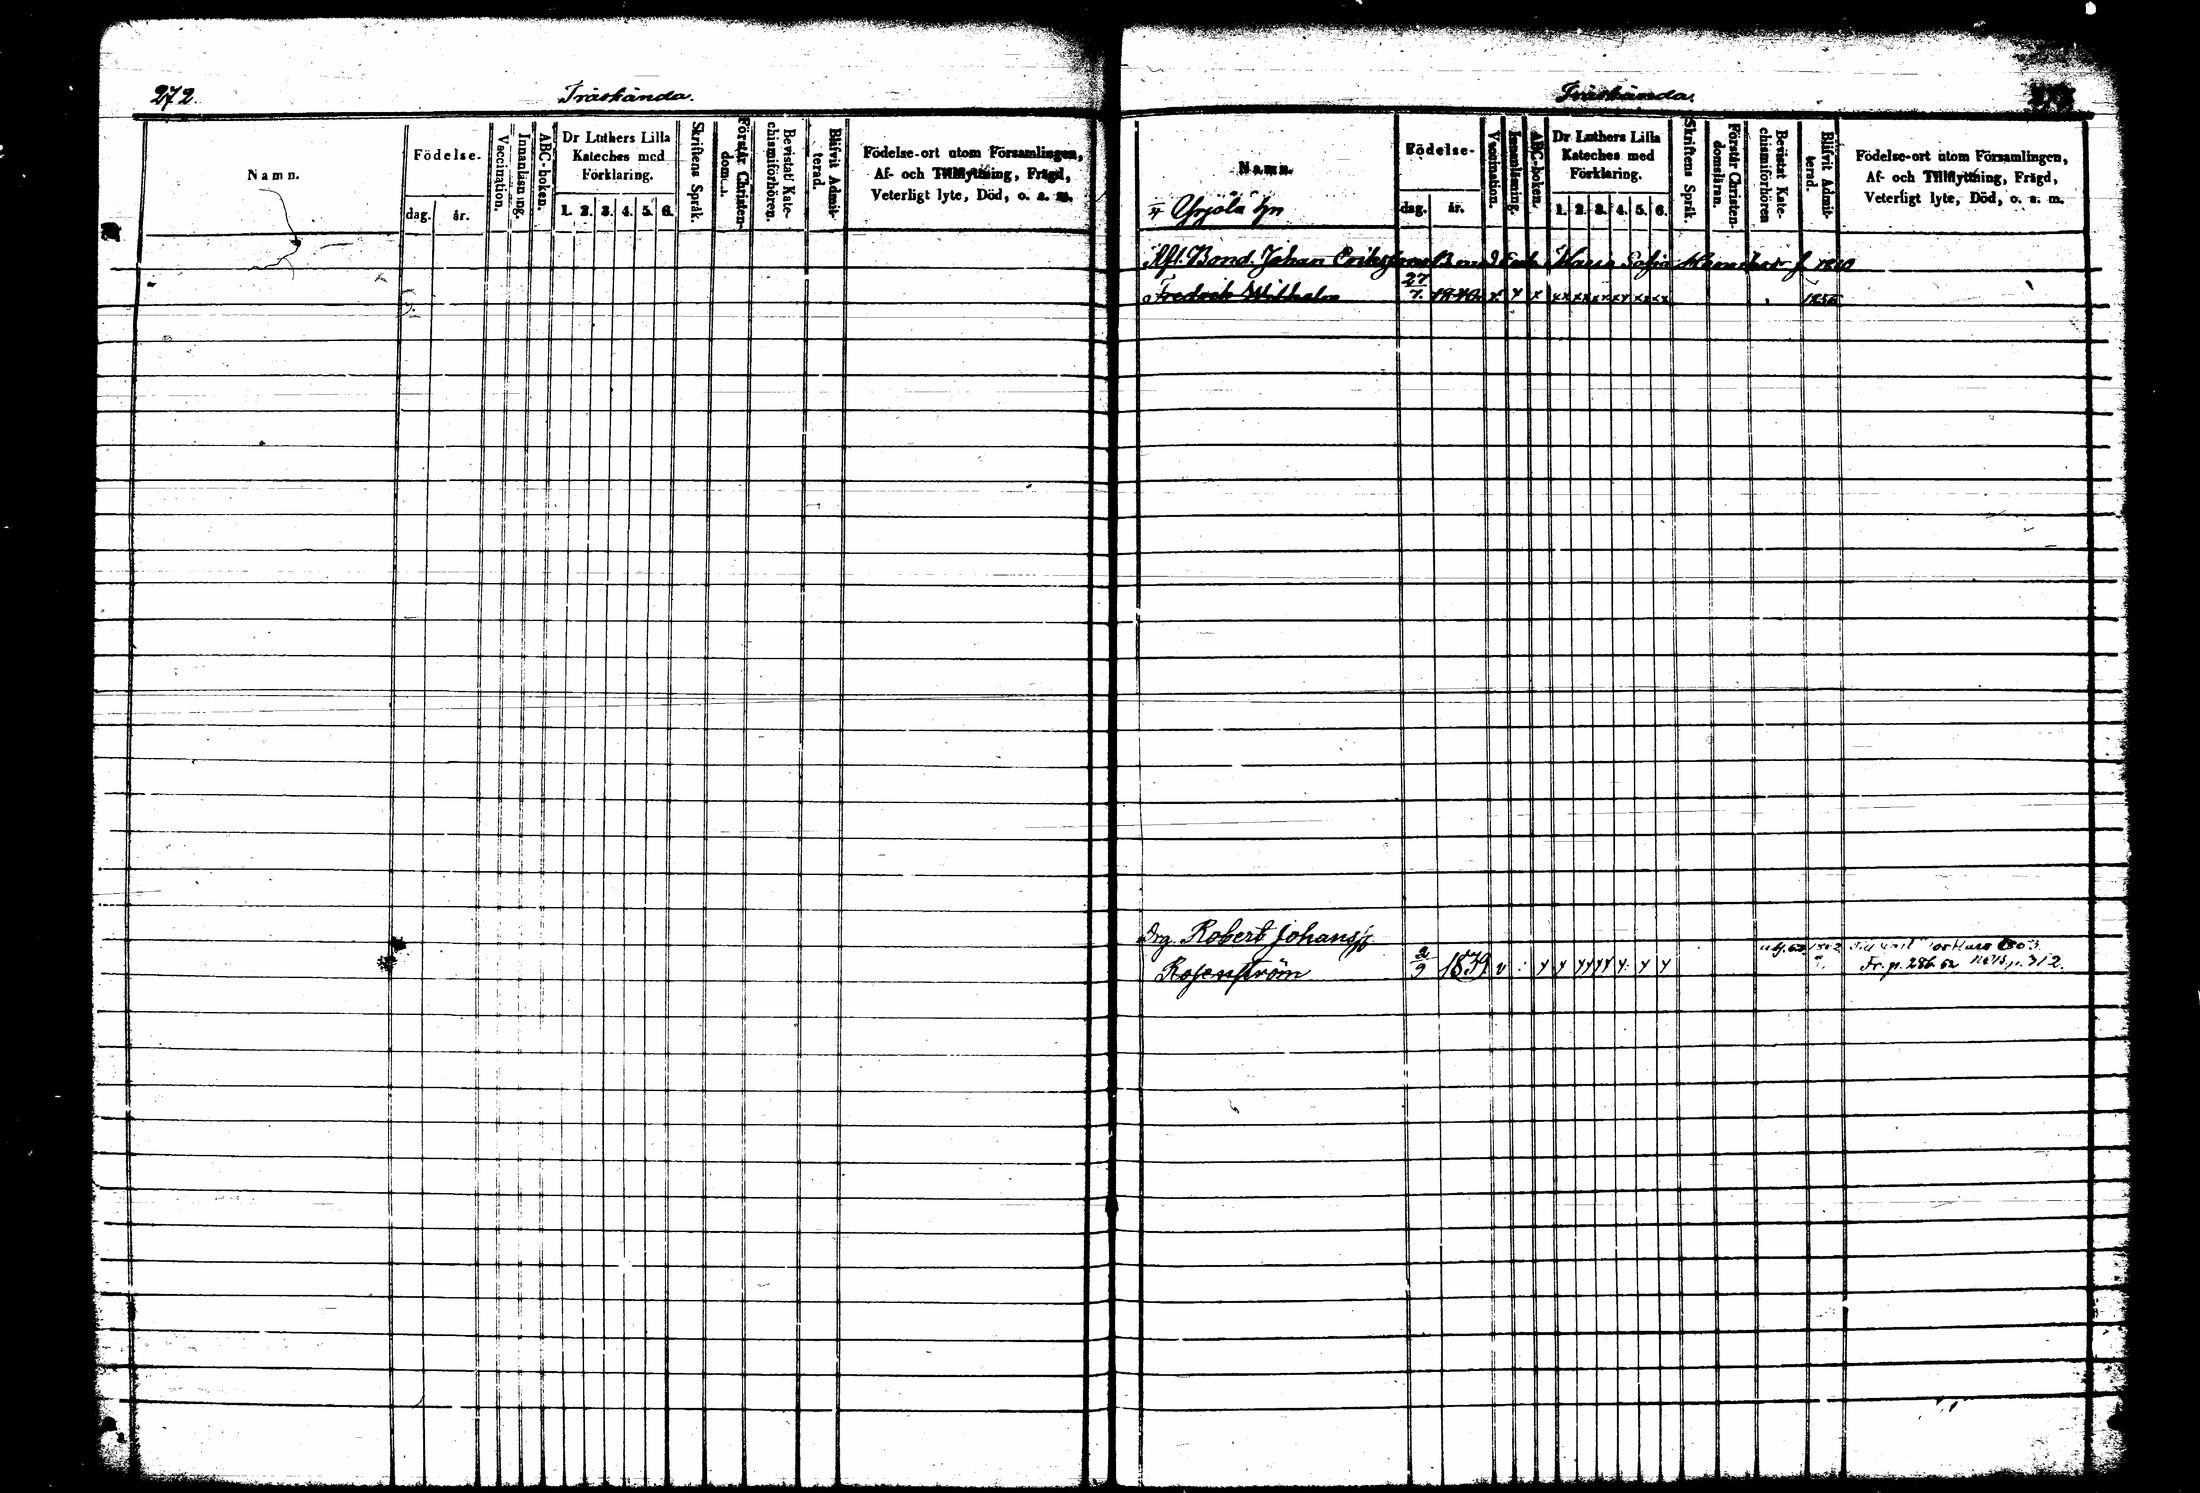 272.
Träskända.
Namn.
Födelse-
dag. år.
Vaccination.
Innanläsning.
ABC-boken.
Dr Luthers Lilla
Kateches med
Förklaring.
1. 2. 3. 4. 5. 6.
Skriftens Språk.
Förstår Christen-
dom
Bevistat Kate-
chismiförhören.
Blifvit Admit-
terad.
Födelse-ort utom Församlingen,
Af- och Tillflyttning, Frägd,
Veterligt lyte, Död, o. a. m.
Träskända.
Namn.
Födelse-
dag. år.
Vaccination.
Innanläsning.
ABC-boken.
Dr Luthers Lilla
Kateches med
Förklaring.
1. 2. 3. 4. 5. 6.
Skriftens Språk.
Förstår Christen-
domsläran.
Bevistat Kate-
chismiförhören
Blifvit Admit-
terad.
Födelse-ort utom Församlingen,
Af- och Tillflyttning, Frägd,
Veterligt lyte, Död, o. a. m.
Afl. Bond. Johan Maria Sofia
Fredrik Wilhelm 27 7. 1840
Drg. Robert Johanss
Rosenström 2 9 1839 Fr. p. 286 p. 312.